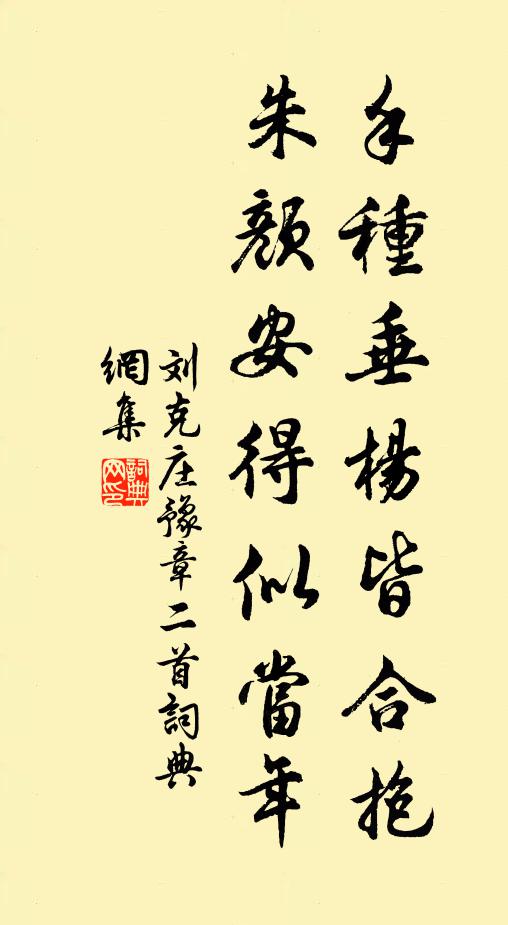 手種垂楊皆合抱
朱顏安得似當年
刘克庄豫章二首詞典
網集
詞典網印